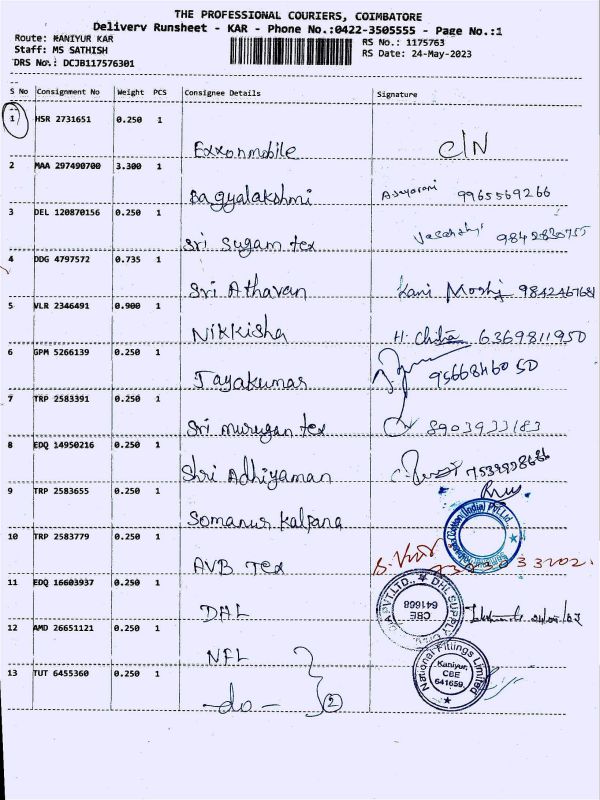 THE PROFESSIONAL COURIERS, COIMBATORE
Delivery Runsheet - KAR - Phone No.:0422-3505555 - Page No.:1
Route: KANIYUR KAR
RS No.: 1175763
Staff: MS SATHISH
RS Date: 24-May-2023
DRS No.: DCJB117576301
S No Consignment No Weight PCS Consignee Details Signature
1 HSR 2731651 0.250 1
Exxonmobile C/N
2 MAA 297490700 3.300 1
Bagyalakshmi 9965569266
3 DEL 120870156 0.250 1
Sri Sugam tex 9842830755
4 DDG 4797572 0.735 1
Sri Athavan Kani Mozhi
5 VLR 2346491 0.900 1
Nikkisha H. Chitra 6369811950
6 GPM 5266139 0.250 1
Jayakumar 9566846050
7 TRP 2583391 0.250 1
Sri murugan tex 8903933183
8 EDQ 14950216 0.250 1
Shri Adhiyaman
9 TRP 2583655 0.250 1
Somanur Kalpana
(India) Pvt.Ltd.,
10 TRP 2583779 0.250 1
AVB Tex
11 EDQ 16603937 0.250 1
DHL
PVT.LTD., ★ DHL SUPPLY
CBE
641668
12 AMD 26651121 0.250 1
NFL
National Fittings Limited
Kaniyur,
CBE
641659.
13 TUT 6455360 0.250 1
-do- 2